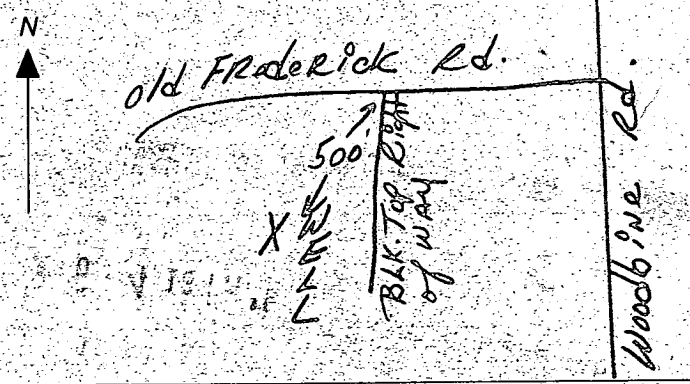 N
Old FRederick Rd.
500'
X WELL
BLK. Top Right
of WAY
Woodbine Rd.